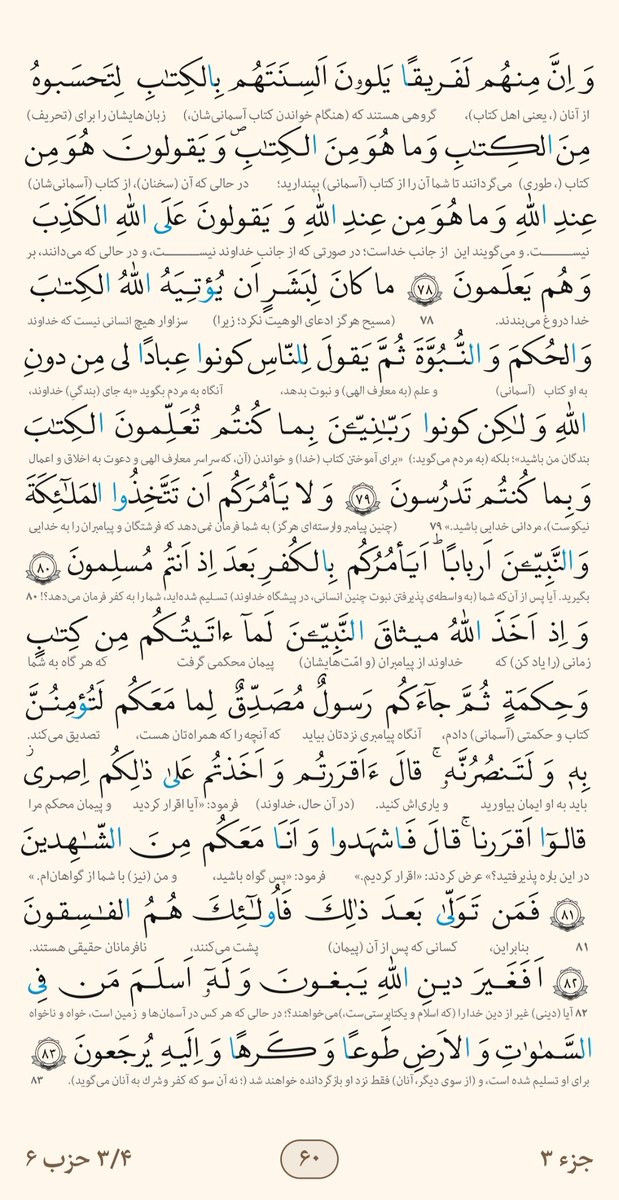 وَ اِنَّ مِنهُم لَفَریقًا یَلوۥنَ اَلسِنَتَهُم بِالکِتٰبِ لِتَحسَبوهُ
از آنان (، یعنی اهل کتاب)، گروهی هستند که (هنگام خواندن کتاب آسمانی‌شان،) زبان‌هایشان را برای (تحریف)
مِنَ الکِتٰبِ وَ ما هُوَ مِنَ الکِتٰبِ ۖ وَ یَقولونَ هُوَ مِن
کتاب (، طوری) می‌گردانند تا شما آن را از کتاب (آسمانی) بپندارید؛ در حالی که آن (سخنان)، از کتاب (آسمانی‌شان)
عِندِ اللهِ وَ ما هُوَ مِن عِندِ اللهِ وَ یَقولونَ عَلَی اللهِ الکَذِبَ
نیست. و می‌گویند این از جانب خداست؛ در صورتی که از جانب خداوند نیست، و در حالی که می‌دانند، بر
وَ هُم یَعلَمونَ ﴿۷۸﴾ ما کانَ لِبَشَرٍ اَن یُؤتِیَهُ اللهُ الکِتٰبَ
خدا دروغ می‌بندند. ۷۸ (مسیح هرگز ادعای الوهیت نکرد؛ زیرا) سزاوار هیچ انسانی نیست که خداوند
وَ الحُکمَ وَ النُّبُوَّةَ ثُمَّ یَقولَ لِلنّاسِ کونوا عِبادًا لی مِن دونِ
به او کتاب (آسمانی) و علم (به معارف الهی) و نبوت بدهد، آنگاه به مردم بگوید «به جای (بندگیِ) خداوند،
اللهِ وَ لٰکِن کونوا رَبّٰنِیّـۧنَ بِما کُنتُم تُعَلِّمونَ الکِتٰبَ
بندگان من باشید»؛ بلکه (به مردم می‌گوید:) «برای آموختن کتاب (خدا) و خواندن (آن، که سراسر معارف الهی و دعوت به اخلاق و اعمال
وَ بِما کُنتُم تَدرُسونَ ﴿۷۹﴾ وَ لا یَأمُرَکُم اَن تَتَّخِذُوا المَلٰٓئِکَةَ
نیکوست)، مردانی خدایی باشید.» ۷۹ (چنین پیامبر وارسته‌ای هرگز) به شما فرمان نمی‌دهد که فرشتگان و پیامبران را به خدایی
وَ النَّبِیّـۧنَ اَربابًا ۗ اَیَأمُرُکُم بِالکُفرِ بَعدَ اِذ اَنتُم مُسلِمونَ ﴿۸۰﴾
بگیرید. آیا پس از آن‌که شما (به واسطه‌ی پذیرفتن نبوت چنین انسانی، در پیشگاه خداوند) تسلیم شده‌اید، شما را به کفر فرمان می‌دهد؟! ۸۰
وَ اِذ اَخَذَ اللهُ میثاقَ النَّبِیّـۧنَ لَمآ ءاتَیتُکُم مِن کِتٰبٍ
زمانی (را یاد کن) که خداوند از پیامبران (و امّت‌هایشان) پیمان محکمی گرفت که هر گاه به شما
وَ حِکمَةٍ ثُمَّ جآءَکُم رَسولٌ مُصَدِّقٌ لِما مَعَکُم لَتُؤمِنُنَّ
کتاب و حکمتی (آسمانی) دادم، آنگاه پیامبری نزدتان بیاید که آنچه را که همراه‌تان هست، تصدیق می‌کند.
بِهٖ وَ لَتَنصُرُنَّهٗ ۚ قالَ ءَاَقرَرتُم وَ اَخَذتُم عَلیٰ ذٰلِکُم اِصری ۖ
باید به او ایمان بیاورید و یاری‌اش کنید. (در آن حال، خداوند) فرمود: «آیا اقرار کردید و پیمان محکم مرا
قالوٓا اَقرَرنا ۚ قالَ فَاشهَدوا وَ اَنَا مَعَکُم مِنَ الشّٰهِدینَ
در این باره پذیرفتید؟» عرض کردند: «اقرار کردیم.» فرمود: «پس گواه باشید، و من (نیز) با شما از گواهان‌ام.»
﴿۸۱﴾ فَمَن تَوَلّیٰ بَعدَ ذٰلِکَ فَاُولٰٓئِکَ هُمُ الفٰسِقونَ
۸۱ بنابراین، کسانی که پس از آن (پیمان) پشت می‌کنند، نافرمانان حقیقی هستند.
﴿۸۲﴾ اَفَغَیرَ دینِ اللهِ یَبغونَ وَ لَهٗٓ اَسلَمَ مَن فِی
۸۲ آیا (دینی) غیر از دین خدا را (که اسلام و یکتاپرستی‌ست،) می‌خواهند؟؛ در حالی که هر کس در آسمان‌ها و زمین است، خواه و ناخواه
السَّمٰوٰتِ وَ الاَرضِ طَوعًا وَ کَرهًا وَ اِلَیهِ یُرجَعونَ ﴿۸۳﴾
برای او تسلیم شده است، و (از سوی دیگر، آنان) فقط نزد او بازگردانده خواهند شد (؛ نه آن سو که کفر و شرك به آنان می‌گوید). ۸۳
جزء ۳ ۶۰ ۳/۴ حزب ۶